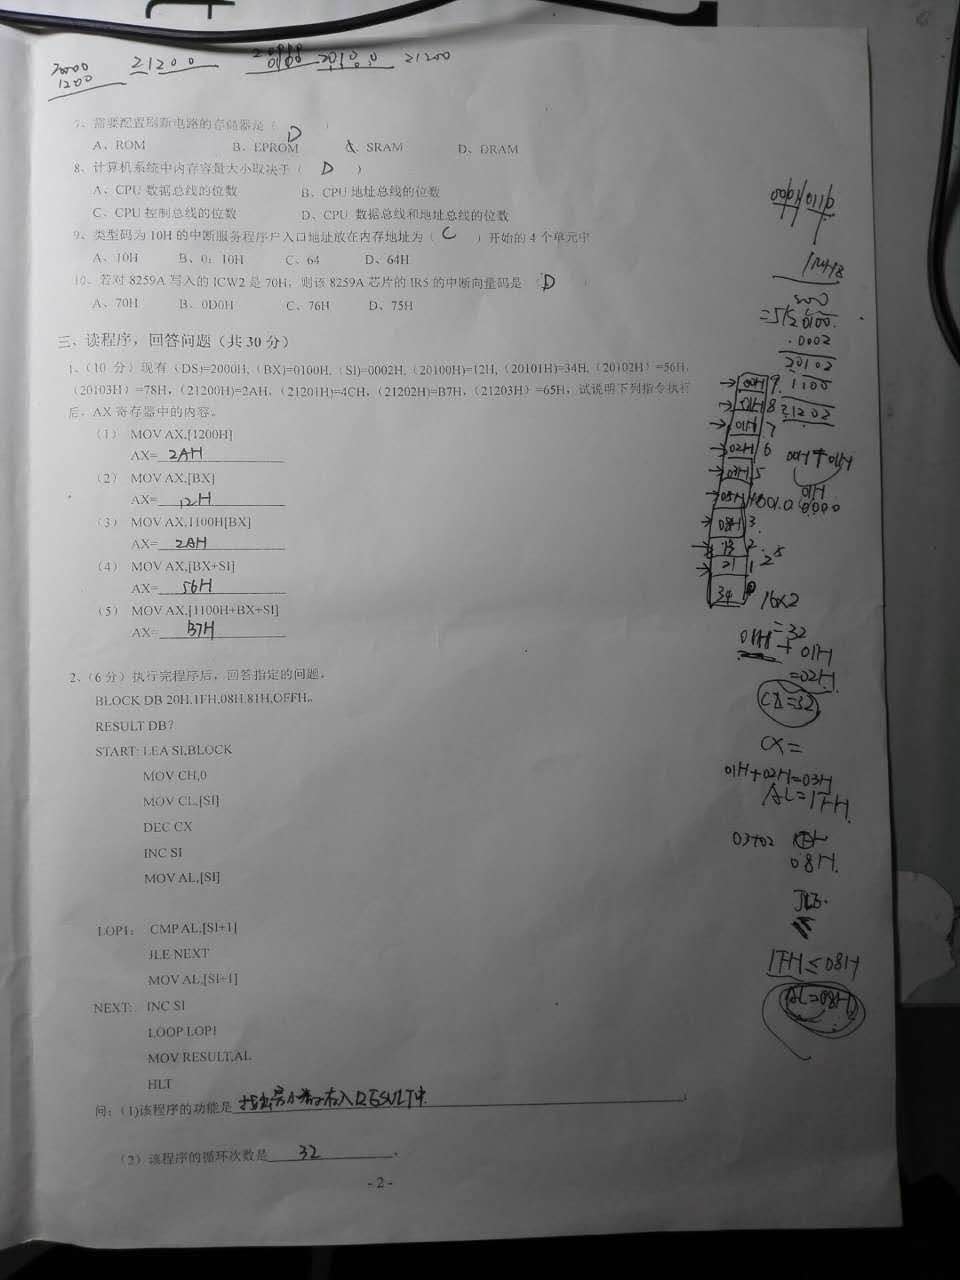 21200
21200
7、需要配置刷新电路的存储器是（ D ）
A、ROM B、EPROM C、SRAM D、DRAM
8、计算机系统中内存容量大小取决于（ D ）
A、CPU 数据总线的位数 B、CPU 地址总线的位数
C、CPU 控制总线的位数 D、CPU 数据总线和地址总线的位数
9、类型码为 10H 的中断服务程序户入口地址放在内存地址为（ C ）开始的 4 个单元中
A、10H B、0：10H C、64 D、64H
10、若对 8259A 写入的 ICW2 是 70H，则该 8259A 芯片的 IR5 的中断向量码是（ D ）
A、70H B、0D0H C、76H D、75H
三、读程序，回答问题（共 30 分）
1、（10 分）现有（DS)=2000H,（BX)=0100H,（SI)=0002H,（20100H)=12H,（20101H)=34H,（20102H）=56H,
（20103H）=78H,（21200H)=2AH,（21201H)=4CH,（21202H)=B7H,（21203H）=65H，试说明下列指令执行
后，AX 寄存器中的内容。
（1） MOV AX,[1200H]
AX= 2AH
（2） MOV AX,[BX]
AX= 12H
（3） MOV AX,1100H[BX]
AX= 2AH
（4） MOV AX,[BX+SI]
AX= 56H
（5） MOV AX,[1100H+BX+SI]
AX= B7H
2、（6 分）执行完程序后，回答指定的问题。
BLOCK DB 20H,1FH,08H,81H,0FFH..
RESULT DB?
START: LEA SI,BLOCK
MOV CH,0
MOV CL,[SI]
DEC CX
INC SI
MOV AL,[SI]
LOP1: CMP AL,[SI+1]
JLE NEXT
MOV AL,[SI+1]
NEXT: INC SI
LOOP LOP1
MOV RESULT,AL
HLT
问：（1)该程序的功能是
（2）该程序的循环次数是 32 。
- 2 -
20102
1100
21202
00H 9
01H 8
01H 7
02H 6
03H 5
08H 3
13 2
21 1
34
16×2
=32
01H + 01H
=02H
CX=32
CX=
01H+02H=03H
AL=1FH
03+02
08H
1FH≤08H
AL=08H